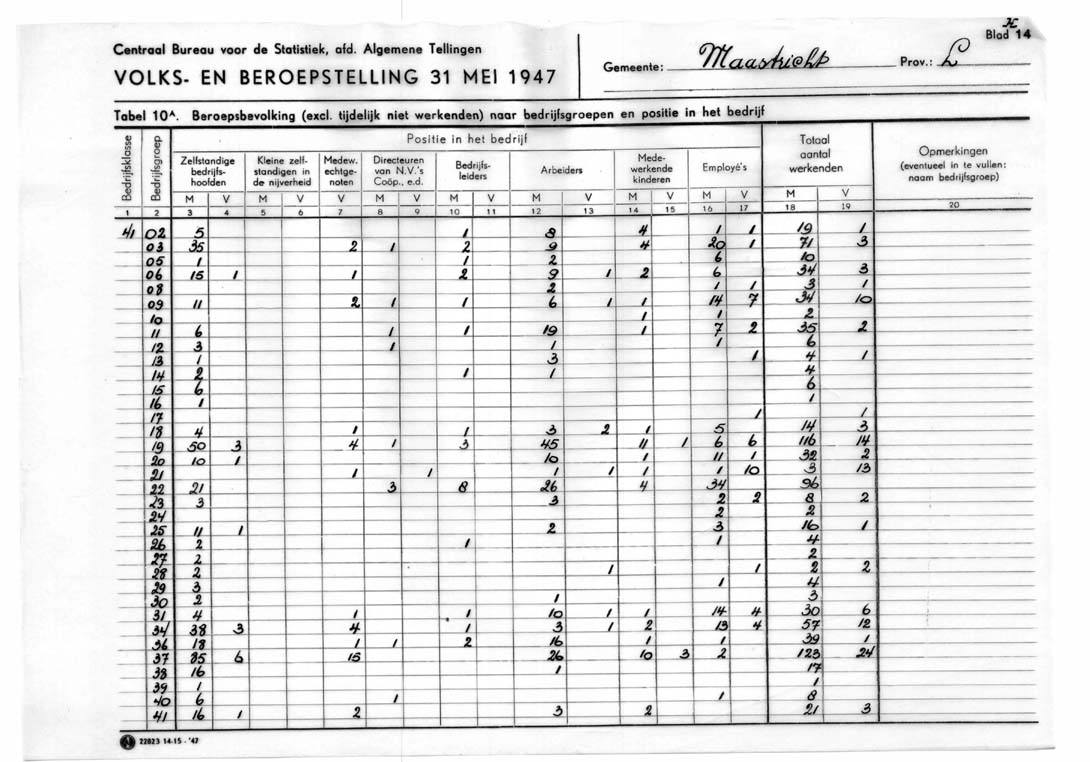 H
Blad 14
Centraal Bureau voor de Statistiek, afd. Algemene Tellingen
VOLKS- EN BEROEPSTELLING 31 MEI 1947
Gemeente: Maastricht Prov.: L
Tabel 10A. Beroepsbevolking (excl. tijdelijk niet werkenden) naar bedrijfsgroepen en positie in het bedrijf
Bedrijfsklasse Bedrijfsgroep Positie in het bedrijf Totaal aantal werkenden Opmerkingen (eventueel in te vullen: naam bedrijfsgroep)
Zelfstandige bedrijfs-hoofden Kleine zelf-standigen in de nijverheid Medew. echtge-noten Directeuren van N.V.'s Coöp., e.d. Bedrijfs-leiders Arbeiders Mede-werkende kinderen Employé's
M V M V V M V M V M V M V M V M V
1 2 3 4 5 6 7 8 9 10 11 12 13 14 15 16 17 18 19 20
41 02 5 1 8 4 1 1 19 1
03 35 2 1 2 9 4 20 1 71 3
05 1 1 2 6 10
06 15 1 1 2 9 1 2 6 34 3
08 2 1 1 3 1
09 11 2 1 1 6 1 1 14 7 34 10
10 1 1 2
11 6 1 1 19 1 7 2 35 2
12 3 1 1 1 6
13 1 3 1 4 1
14 2 1 1 4
15 6 6
16 1 1
17 1 1
18 4 1 1 3 2 1 5 14 3
19 50 3 4 1 3 45 11 1 6 6 116 14
20 10 1 10 1 11 1 32 2
21 1 1 1 1 1 1 10 3 13
22 21 3 8 26 4 34 96
23 3 3 2 2 8 2
24 2 2
25 11 1 2 3 16 1
26 2 1 1 4
27 2 2
28 2 1 1 2 2
29 3 1 4
30 2 1 3
31 4 1 1 10 1 1 14 4 30 6
34 38 3 4 1 3 1 2 13 4 57 12
36 18 1 1 2 16 1 1 39 1
37 85 6 15 26 10 3 2 123 24
38 16 1 17
39 1 1
40 6 1 1 8
41 16 1 2 3 2 21 3
22823 14-15 - '47